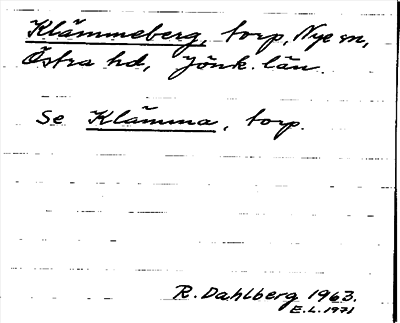 Klämmeberg, torp, Nye sn,
Östra hd, Jönk. län.
Se Klämma, torp.
R. Dahlberg 1963.
E.L. 1971